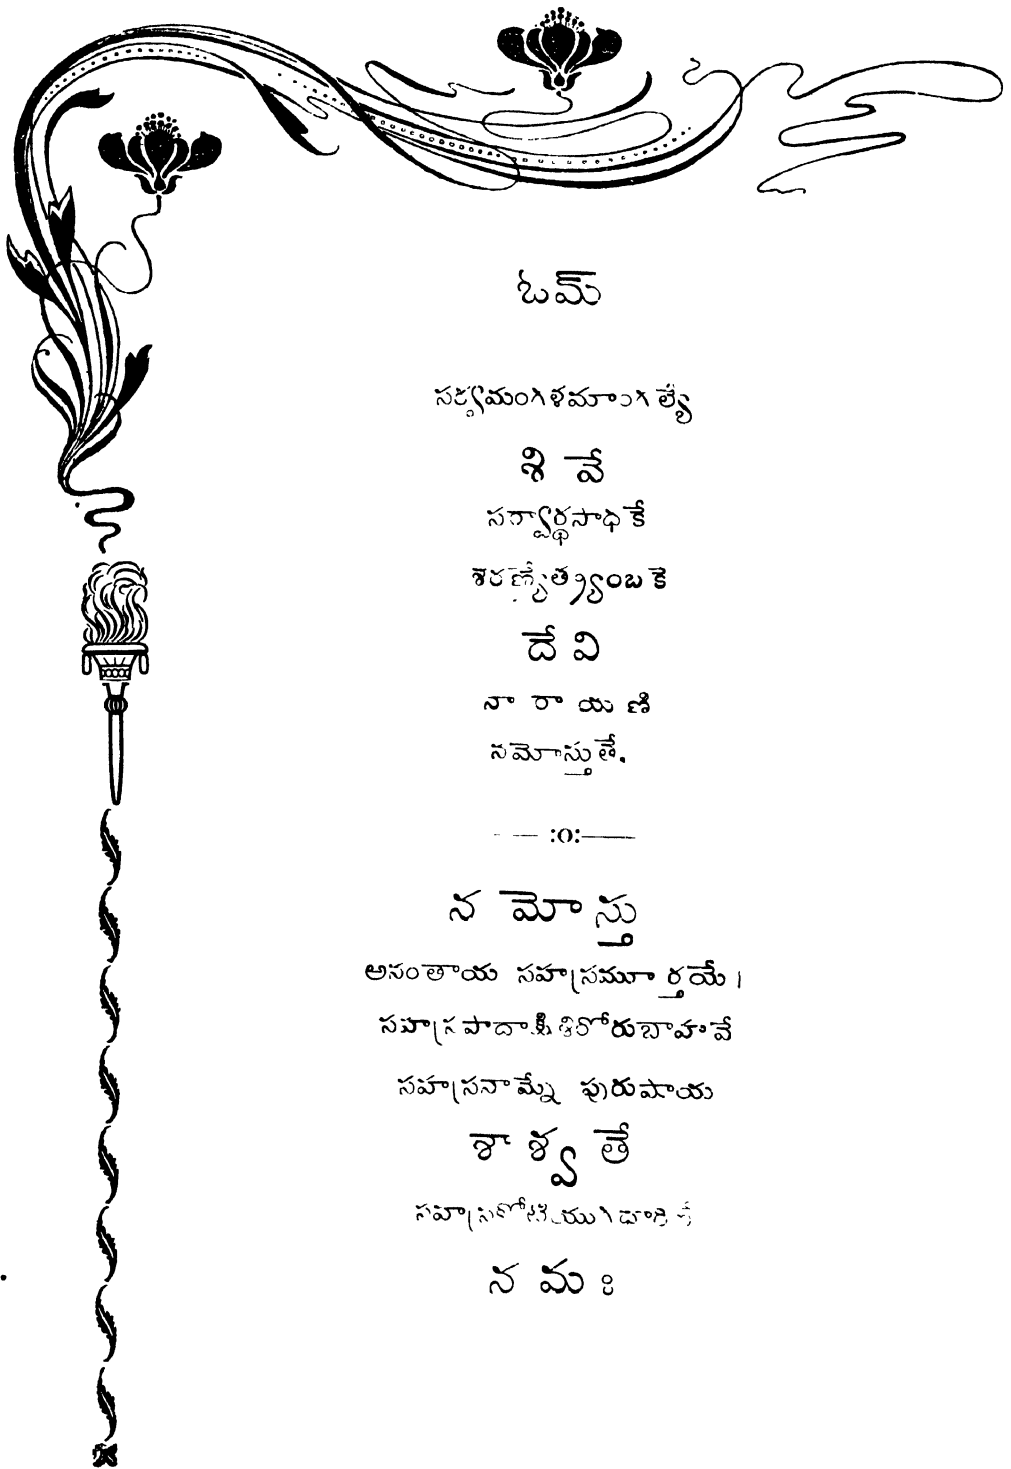 ఓమ్
సర్వమంగళమాంగల్యే
శివే
సర్వార్థసాధకే
శరణ్యేత్ర్యంబకె
దేవి
నారాయణి
నమోస్తుతే.
— — :o: ——
నమోస్తు
అనంతాయ సహస్రమూర్తయే।
సహస్రపాదాక్షిశిరోరుబాహవే
సహస్రనామ్నే పురుషాయ
శాశ్వతే
సహస్రకోటియుగధారిణే
నమః